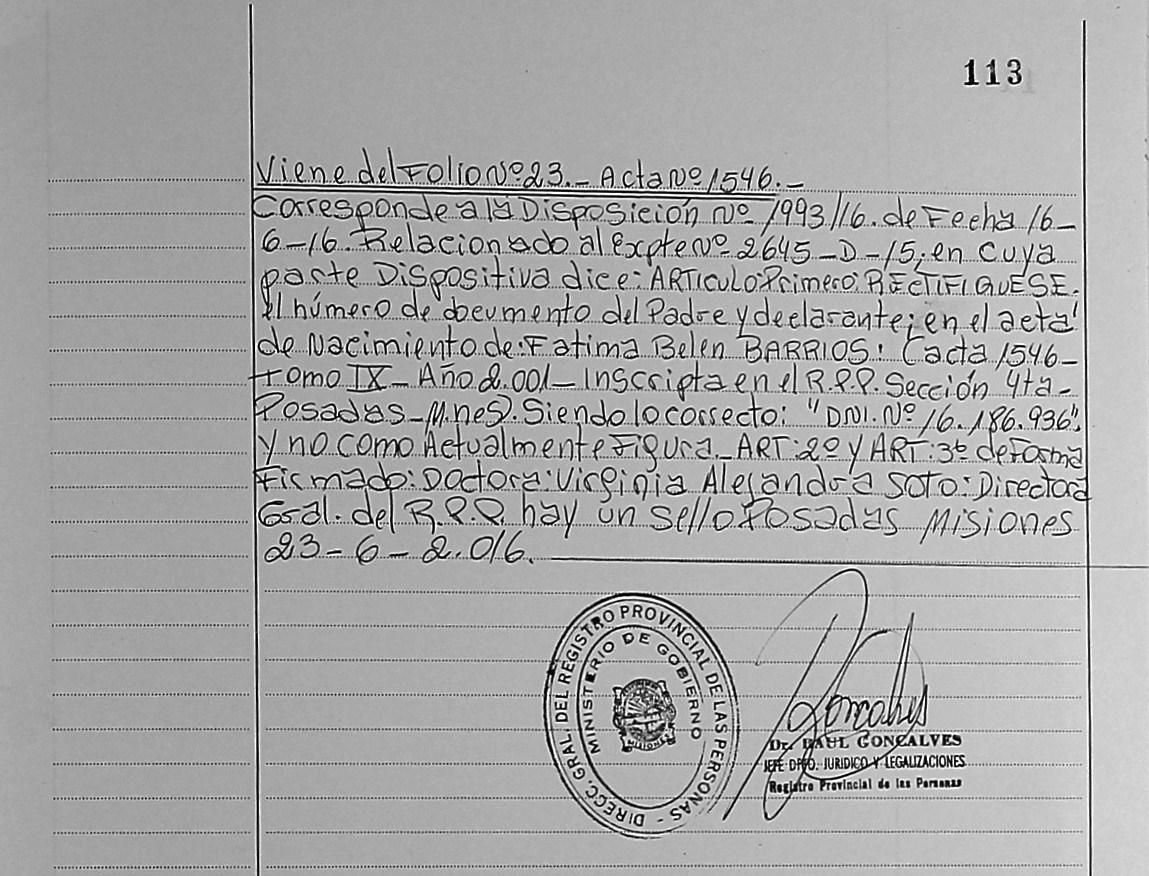 113
Viene del Folio Nº 23.- Acta Nº 1546.-
Corresponde a la Disposición Nº 1993/16. de Fecha 16-
6-16. Relacionado al Expte Nº 2645-D-15; en Cuya
parte Dispositiva dice: ARTICulo: Primero: RECTIFIQUESE.
el número de documento del Padre y declarante; en el acta
de Nacimiento de: Fatima Belen BARRIOS: (acta 1546-
tomo IX- Año 2.001- Inscripta en el R.P.P. Sección 4ta-
Posadas-Mnes). Siendo lo correcto: "DNI. Nº 16.186.936",
y no como Actualmente Figura.- ART: 2º y ART: 3º de Forma
Firmado: Doctora: Virginia Alejandra Soto: Directora
Gral. del R.P.P. hay un sello Posadas Misiones
23-6-2.016.
DIRECC. GRAL. DEL REGISTRO PROVINCIAL DE LAS PERSONAS -
MINISTERIO DE GOBIERNO
MISIONES
Goncalves
Dr. RAUL GONCALVES
JEFE DPTO. JURIDICO Y LEGALIZACIONES
Registro Provincial de las Personas